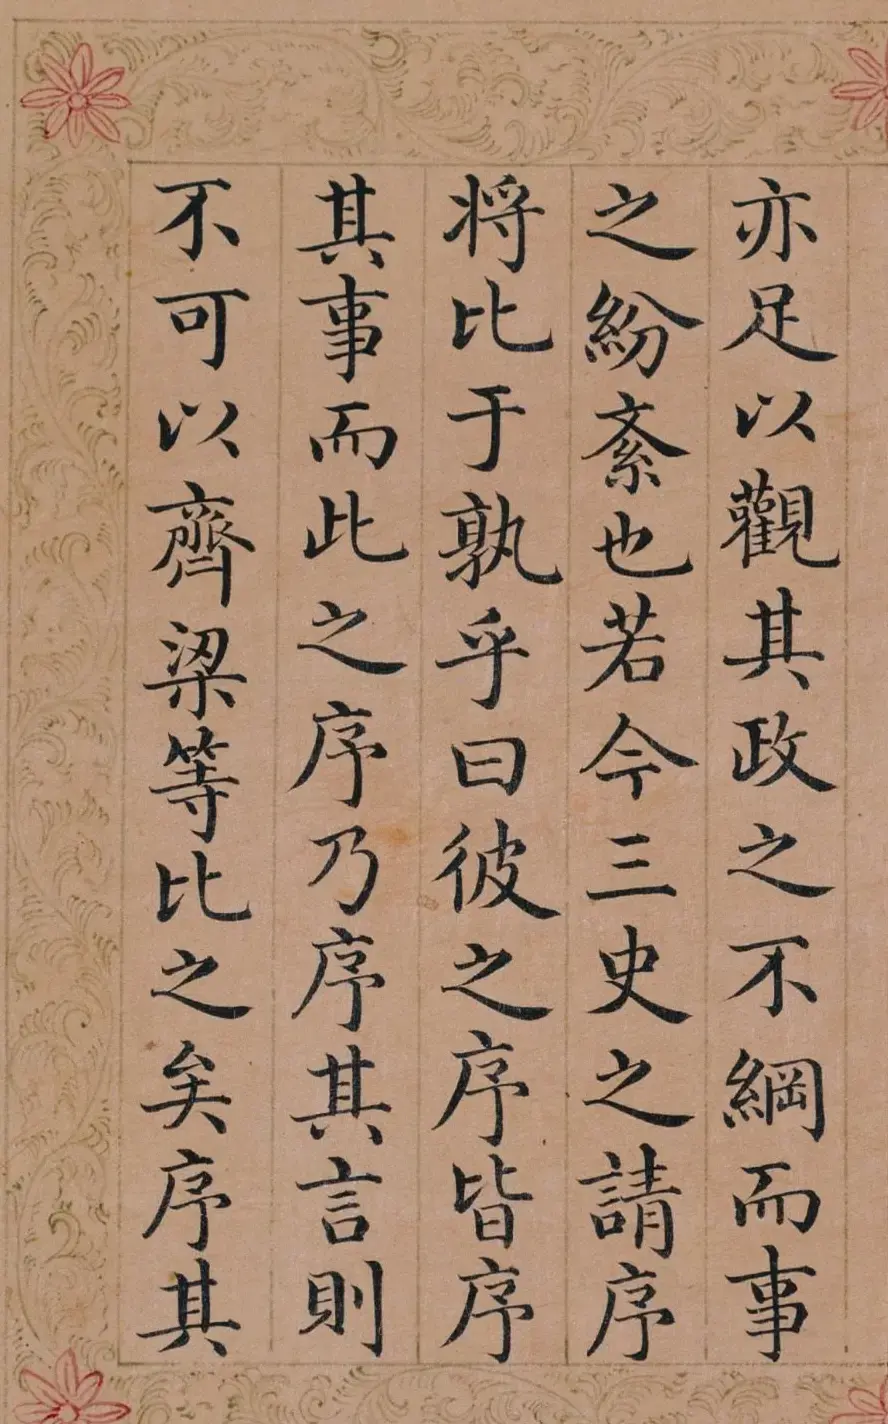 亦足以觀其政之不綱而事
之紛紊也若今三史之請序
将比于孰乎曰彼之序皆序
其事而此之序乃序其言則
不可以齊梁等比之矣序其